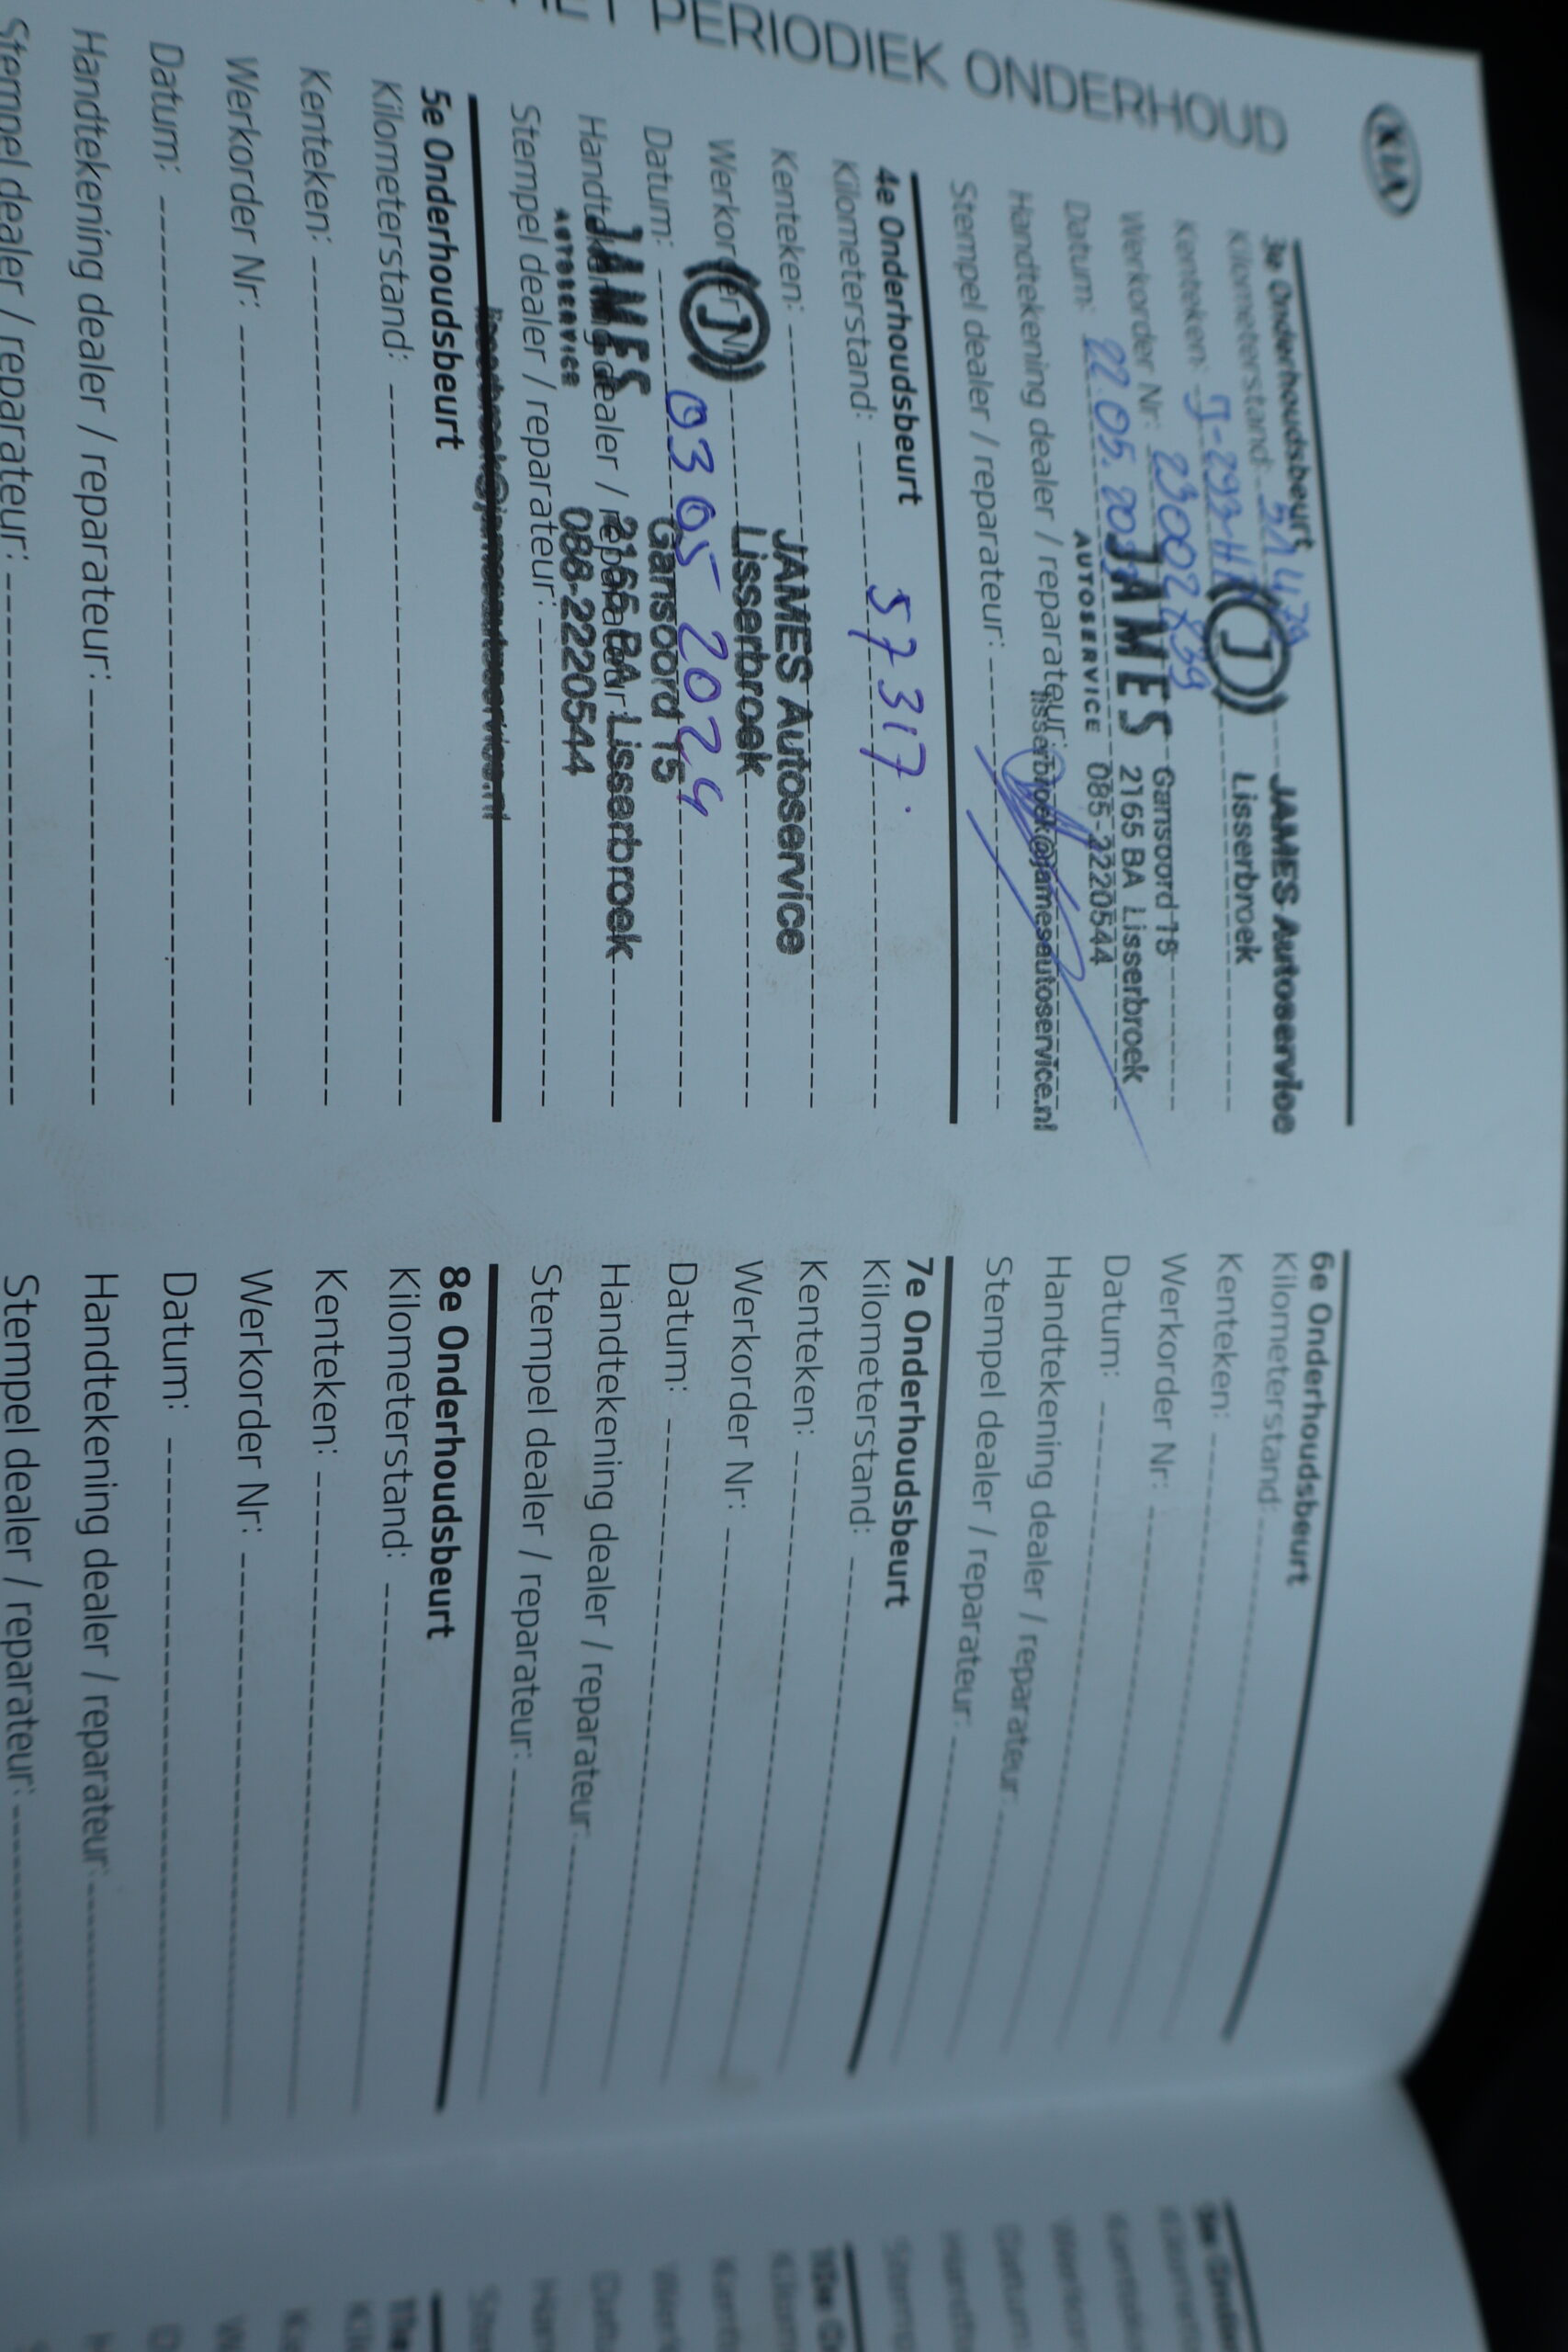 KIA
PERIODIEK ONDERHOUD
3e Onderhoudsbeurt
Kilometerstand:
Kenteken:
Werkorder Nr: 23002839
Datum: 22.05.
Handtekening dealer / reparateur:
Stempel dealer / reparateur:
J
JAMES
AUTOSERVICE
JAMES Autoservice
Lisserbroek
Gansoord 15
2165 BA Lisserbroek
085-2220544
lisserbroek@jamesautoservice.nl
4e Onderhoudsbeurt
Kilometerstand: 57317.
Kenteken:
Werkorder Nr:
Datum: 03 05 2024
Handtekening dealer / reparateur:
Stempel dealer / reparateur:
J
JAMES
AUTOSERVICE
JAMES Autoservice
Lisserbroek
Gansoord 15
2165 BA Lisserbroek
088-2220544
lisserbroek@jamesautoservice.nl
5e Onderhoudsbeurt
Kilometerstand:
Kenteken:
Werkorder Nr:
Datum:
Handtekening dealer / reparateur:
Stempel dealer / reparateur:
6e Onderhoudsbeurt
Kilometerstand:
Kenteken:
Werkorder Nr:
Datum:
Handtekening dealer / reparateur:
Stempel dealer / reparateur:
7e Onderhoudsbeurt
Kilometerstand:
Kenteken:
Werkorder Nr:
Datum:
Handtekening dealer / reparateur:
Stempel dealer / reparateur:
8e Onderhoudsbeurt
Kilometerstand:
Kenteken:
Werkorder Nr:
Datum:
Handtekening dealer / reparateur:
Stempel dealer / reparateur: